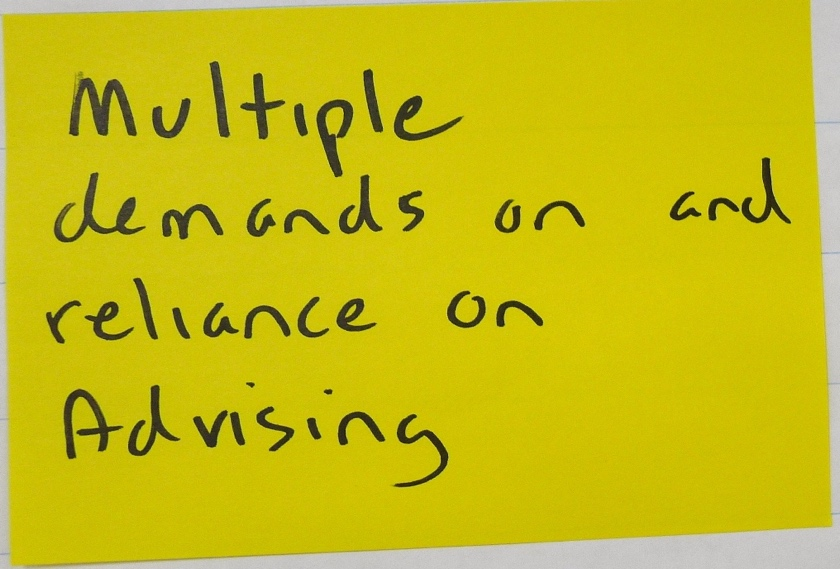 Multiple
demands on and
reliance on
Advising